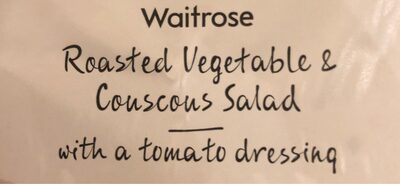 Waitrose
Roasted Vegetable &
Couscous Salad
with a tomato dressing